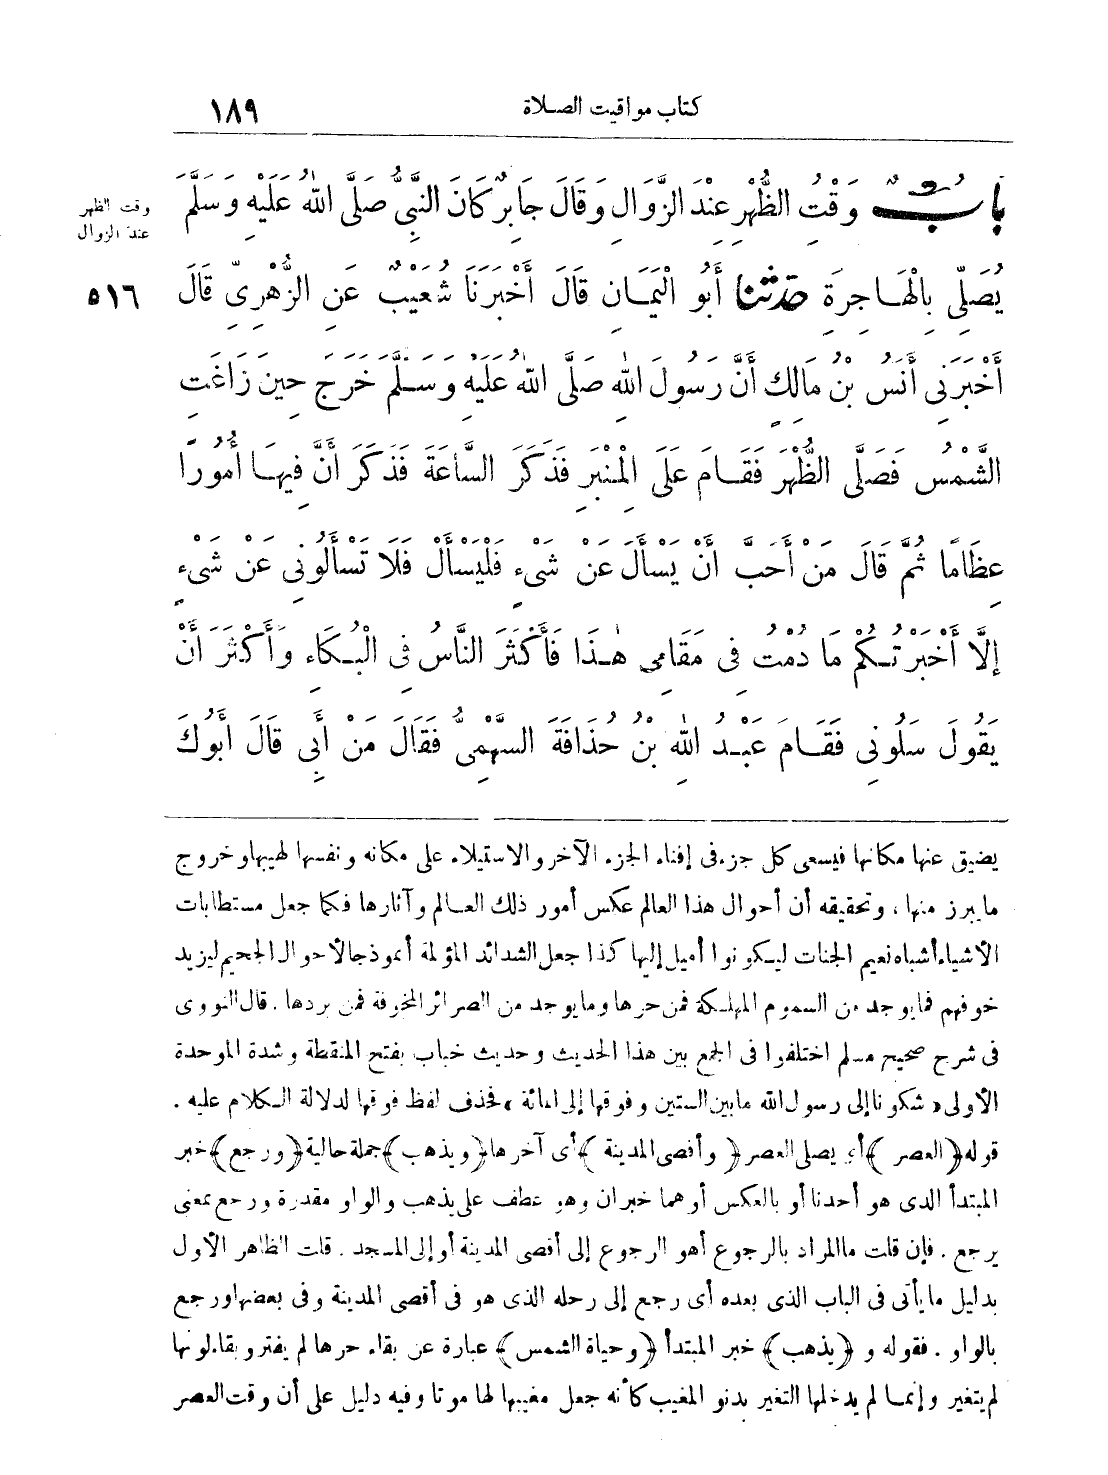 كتاب مواقيت الصلاة
١٨٩
بَابٌ وَقْتُ الظُّهْرِ عِنْدَ الزَّوَالِ وَقَالَ جَابِرٌ كَانَ النَّبِيُّ صَلَّى اللهُ عَلَيْهِ وَسَلَّمَ
وقت الظهر
عند الزوال
يُصَلِّي بِالْهَاجِرَةِ حَدَّثَنَا أَبُو الْيَمَانِ قَالَ أَخْبَرَنَا شُعَيْبٌ عَنِ الزُّهْرِيِّ قَالَ
٥١٦
أَخْبَرَنِي أَنَسُ بْنُ مَالِكٍ أَنَّ رَسُولَ اللهِ صَلَّى اللهُ عَلَيْهِ وَسَلَّمَ خَرَجَ حِينَ زَاغَتِ
الشَّمْسُ فَصَلَّى الظُّهْرَ فَقَامَ عَلَى الْمِنْبَرِ فَذَكَرَ السَّاعَةَ فَذَكَرَ أَنَّ فِيهَا أُمُورًا
عِظَامًا ثُمَّ قَالَ مَنْ أَحَبَّ أَنْ يَسْأَلَ عَنْ شَيْءٍ فَلْيَسْأَلْ فَلَا تَسْأَلُونِي عَنْ شَيْءٍ
إِلَّا أَخْبَرْتُكُمْ مَا دُمْتُ فِي مَقَامِي هٰذَا فَأَكْثَرَ النَّاسُ فِي الْبُكَاءِ وَأَكْثَرَ أَنْ
يَقُولَ سَلُونِي فَقَامَ عَبْدُ اللهِ بْنُ حُذَافَةَ السَّهْمِيُّ فَقَالَ مَنْ أَبِي قَالَ أَبُوكَ
يضيق عنها مكانها فيسعى كل جزء في إفناء الجزء الآخر والاستيلاء على مكانه ونفسها لهيبها وخروج
ما يبرز منها ، وتحقيقه أن أحوال هذا العالم عكس أمور ذلك العالم وآثارها فكما جعل مستطابات
الأشياء أشباه نعيم الجنات ليكونوا أميل إليها كذا جعل الشدائد المؤلمة أنموذجا لأحوال الجحيم ليزيد
خوفهم فما يوجد من السموم المهلكة فمن حرها وما يوجد من الصرائر المخوفة فمن بردها . قال النووى
فى شرح صحيح مسلم اختلفوا فى الجمع بين هذا الحديث وحديث خباب بفتح المنقطة وشدة الموحدة
الأولى « شكونا إلى رسول الله ما بين الستين وفوقها إلى المائة » فحذف لفظ فوقها لدلالة الكلام عليه .
قوله ﴿العصر﴾ أى يصلى العصر ﴿وأقصى المدينة﴾ أى آخرها ﴿ويذهب﴾ جملة حالية ﴿ورجع﴾ خبر
المبتدأ الذى هو أحدنا أو بالعكس أو هما خبران وهو عطف على يذهب والواو مقدرة ورجع بمعنى
يرجع . فإن قلت ما المراد بالرجوع أهو الرجوع إلى أقصى المدينة أو إلى المسجد . قلت الظاهر الأول
بدليل ما يأتى فى الباب الذى بعده أى رجع إلى رحله الذى هو فى أقصى المدينة وفى بعضها ورجع
بالواو . فقوله و ﴿يذهب﴾ خبر المبتدأ ﴿وحياة الشمس﴾ عبارة عن بقاء حرها لم يفتر وبقاء لونها
لم يتغير وإنما لم يدخلها التغير بدنو المغيب كأنه جعل مغيبها لها موتا وفيه دليل على أن وقت العصر